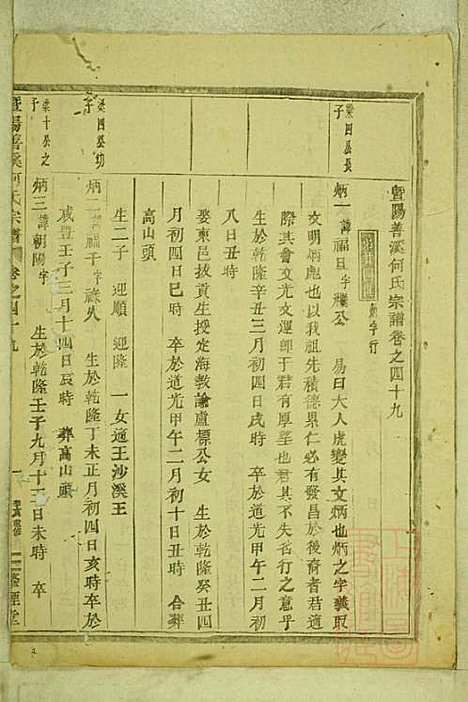 暨陽善溪何氏宗譜卷之四十九
字行
榮四公長子
炳一 諱福旦字 公 易曰大人虎變其文炳也炳之字義取
文明炳彪也以我祖先積德累仁必有發昌於後裔者君適
際其會文光文運卽于君有厚望也君其不失名行之意乎
生於乾隆辛丑三月初四日戌時 卒於道光甲午二月初
八日丑時
娶東邑拔貢生授定海教諭盧標公女 生於乾隆癸丑四
月初四日巳時 卒於道光甲午二月初十日丑時 合葬
高山頭
生二子 迎順 迎隆 一女適王沙溪王
榮四公幼子
炳二 福 字 生於乾隆丁未正月初四日亥時卒於
咸豐壬子三月十四日亥時 葬高山頭
榮十公之子
炳三 諱朝陽字 生於乾隆壬子九月十二日未時 卒
暨陽善溪何氏宗譜 卷之四十九
一
堂